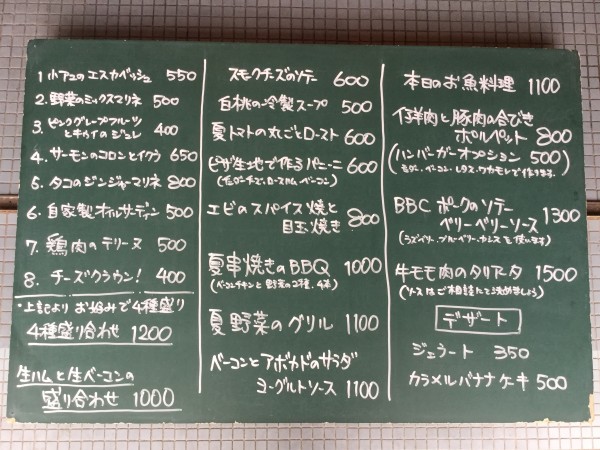 1 小アユのエスカベッシュ 550
2. 野菜のミックスマリネ 500
3. ピンクグレープフルーツ
とキウイのジュレ 400
4. サーモンのコロンとイクラ 650
5. タコのジンジャーマリネ 800
6. 自家製オイルサーディン 500
7. 鶏肉のテリーヌ 500
8. チーズクラウン! 400
・上記より お好みで4種盛り
4種盛り合わせ 1200
生ハムと生ベーコンの
盛り合わせ 1000
スモークチーズのソテー 600
白桃の冷製スープ 500
夏トマトの丸ごとロースト 600
ピザ生地で作るパニーニ 600
エビのスパイス焼と
目玉焼き 800
夏串焼きのBBQ 1000
(ベーコンチキンと野菜の2種、4本)
夏野菜のグリル 1100
ベーコンとアボカドのサラダ
ヨーグルトソース 1100
本日のお魚料理 1100
仔羊肉と豚肉の合びき
ポルペット 800
(ハンバーガーオプション 500)
BBC ポークのソテー
ベリーベリーソース 1300
(ラズベリー、ブルーベリー、カシスを使います)
牛モモ肉のタリアータ 1500
(ソースはご相談にて決めましょう)
デザート
ジェラート 350
カラメルバナナケーキ 500